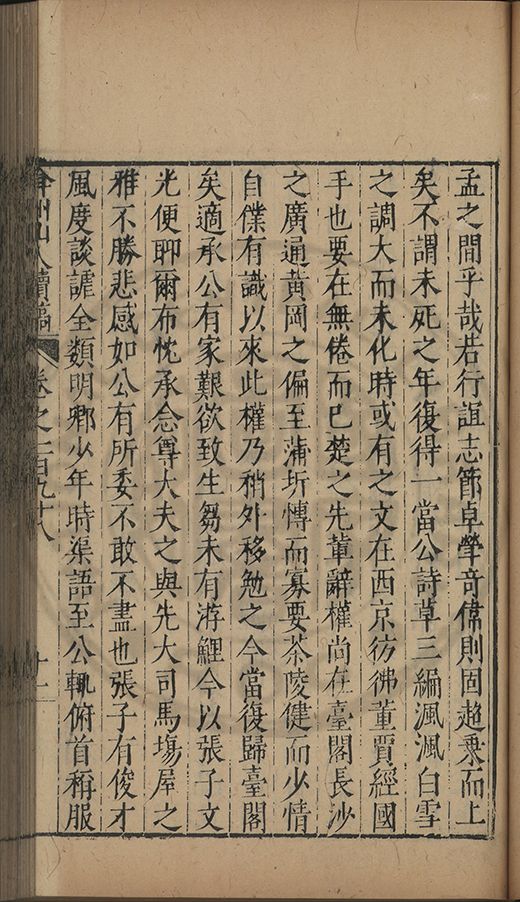 孟之間乎哉若行誼志節卓犖奇偉則固超乗而上
矣不謂未死之年復得一當公詩草三編渢渢白雪
之調大而未化時或有之文在西京彷彿董賈經國
手也要在無倦而已楚之先軰辭權尚在臺閣長沙
之廣通黃岡之偏至蒲圻愽而寡要茶陵健而少情
自僕有識以來此權乃稍外移勉之今當復歸臺閣
矣適承公有家艱欲致生芻未有游鯉今以張子文
光便聊爾布忱承念尊大夫之與先大司馬塲屋之
雅不勝悲感如公有所委不敢不盡也張子有俊才
風度談謔全類明卿少年時渠語至公輒俯首稱服
弇州山人續稿 卷之一百九十八 十一